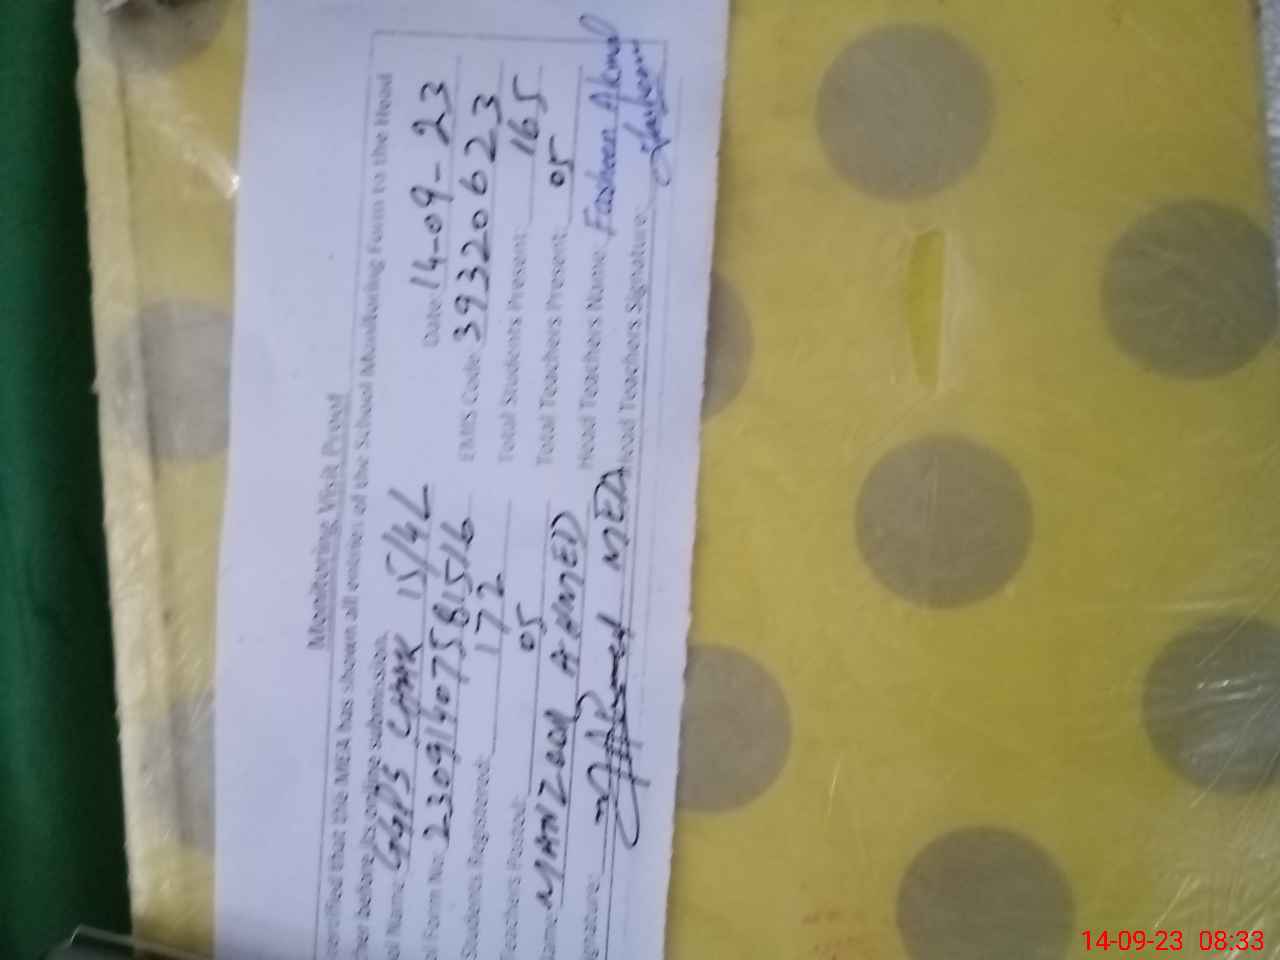 Monitoring Visit Proof
verified that the MEA has shown all entries of the School Monitoring Form to the Head
cher before its online submission.
ol Name: GGPS CHAK 15/4L Date: 14-09-23
ol Form No: 23091407581516 EMIS Code: 39320623
Students Registered: 172 Total Students Present: 165
Teachers Posted: 05 Total Teachers Present: 05
Name: MANZOOR AHMED Head Teachers Name: Akmal
ignature: Ahmed MEA Head Teachers Signature:
14-09-23 08:33